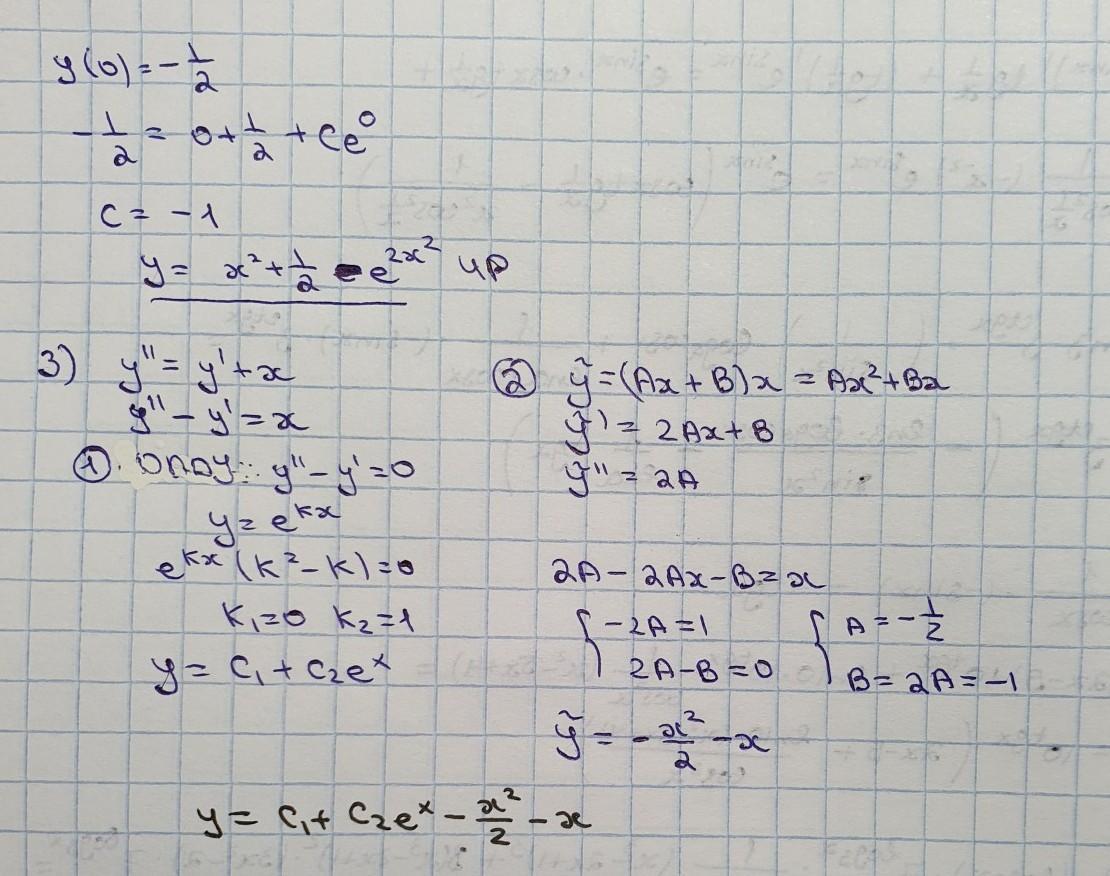 y(0) = -1/2
-1/2 = 0 + 1/2 + Ce^0
C = -1
y = x² + 1/2 - e^{2x²} ЧР
3) y'' = y' + x
y'' - y' = x
① ОЛДУ: y'' - y' = 0
y = e^{kx}
e^{kx} (k² - k) = 0
k₁ = 0 k₂ = 1
y = C₁ + C₂e^x
② ỹ = (Ax + B)x = Ax² + Bx
ỹ' = 2Ax + B
ỹ'' = 2A
2A - 2Ax - B = x
{ -2A = 1 { A = -1/2
2A - B = 0 B = 2A = -1
ỹ = -x²/2 - x
y = C₁ + C₂e^x - x²/2 - x